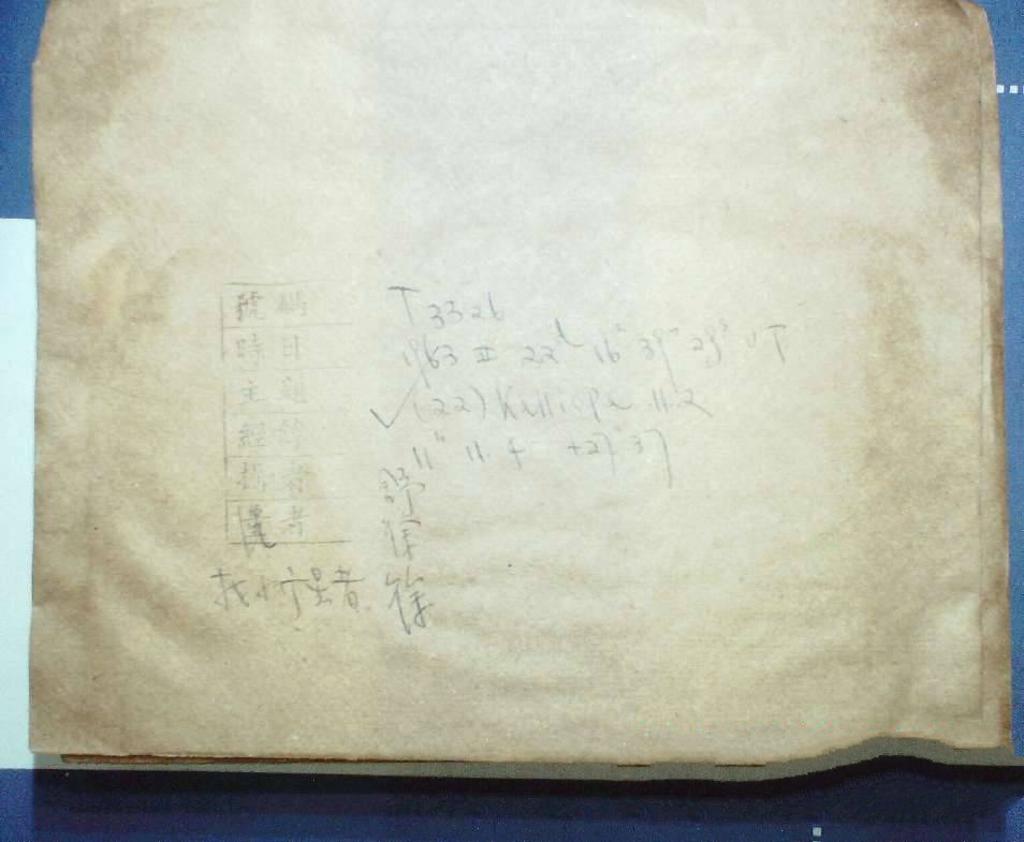 號碼 T 3326
時日 1963 II 22ᵈ 16ʰ 39ᵐ 29ˢ UT
主題 ✓ (22) Kalliope 11.2
經緯 11ʰ 11.4 +27° 37'
攝者 舒
者 徐
找小行星者 徐